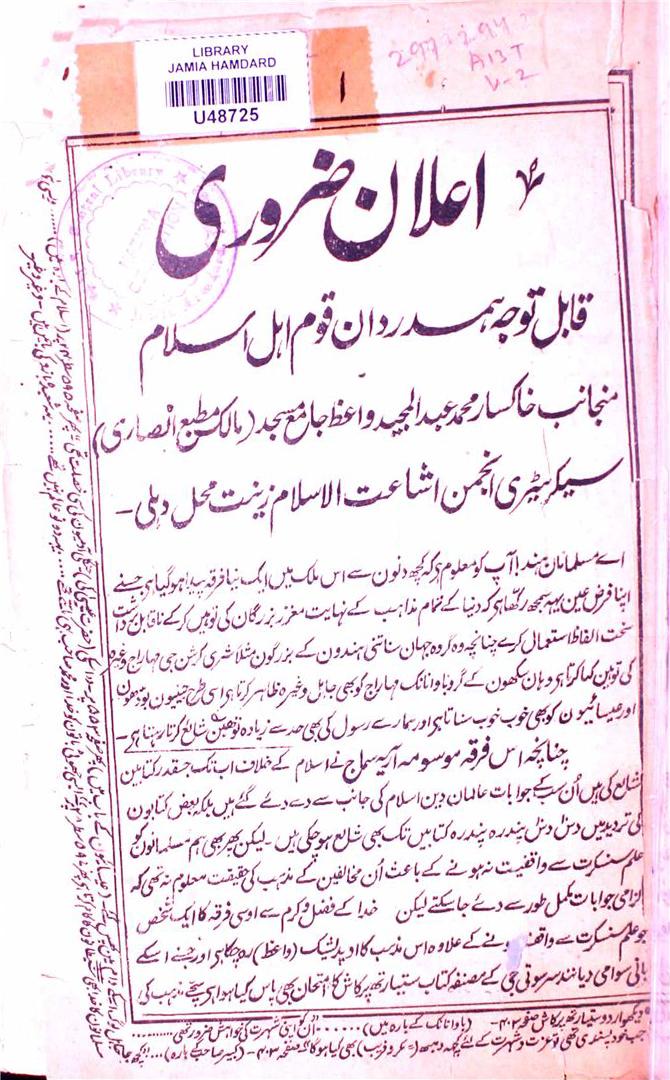 LIBRARY
JAMIA HAMDARD
U48725
297.294
A13T
V-2
۱
اعلان ضروری
قابل توجہ ہمدردان قوم اہل اسلام
منجانب خاکسار محمد عبد المجید واعظ جامع مسجد (مالک مطبع انصاری)
سیکریٹری انجمن اشاعت الاسلام زینت محل دہلی -
اے مسلمانان ہند! آپ کو معلوم ہوگا کہ کچھ دنوں سے اس ملک میں ایک نیا فرقہ پیدا ہوگیا ہے جسنے
اپنا فرض عین یہ سمجھ رکھا ہے کہ دنیا کے تمام مذاہب کے نہایت معزز بزرگان کی توہین کرکے ناقابل برداشت
سخت الفاظ استعمال کرے چنانچہ وہ گروہ جہان سناتنی ہندون کے بزرگون مثلا شری کرشن جی مہاراج وغیرہ
کی توہین کیا کرتا ہے وہان سکھون کے گرو باوا نانک مہاراج کو بھی جاہل وغیرہ ظاہر کرتا ہے اسی طرح جینیون بودھون
اور عیسائیون کو بھی خوب خوب سناتا ہے اور ہمارے رسول کی بھی حد سے زیادہ توہین شایع کرتا رہتا ہے -
چنانچہ اس فرقہ موسومہ آریہ سماج نے اسلام کے خلاف اب تک جسقدر کتابین
شایع کی ہین اُن سب کے جوابات عالمان دین اسلام کی جانب سے دے دئے گئے ہین بلکہ بعض کتابون
کی تردید مین دس دس پندرہ پندرہ کتابین تک بھی شایع ہوچکی ہین - لیکن پھر بھی ہم مسلمانون کو
علم سنسکرت سے واقفیت نہ ہونے کے باعث اُن مخالفین کے مذہب کی حقیقت معلوم نہ تھی کہ
الزامی جوابات مکمل طور سے دئے جاسکتے لیکن خدا کے فضل و کرم سے اوسی فرقہ کا ایک شخص
جو علم سنسکرت سے واقف ہونے کے علاوہ اس مذہب کا اوپدیشک (واعظ) رہ چکا ہے اور جسنے اسکے
بانی سوامی دیانند سرسوتی جی کے مصنفہ کتاب ستیارتھ پرکاش کا امتحان بھی پاس کیا ہوا ہے سچے مذہب کی
دیکھو اردو ستیارتھ پرکاش صفحہ ۴۰۲ (باوا نانک کے بارہ مین) ...... اُن کو اپنی شہرت کی خواہش ضرور تھی ......
جب خود پسندی تھی تو عزت و شہرت کے لئے کچھ دمبھ (= مکر و فریب) بھی کیا ہوگا صفحہ ۴۰۳ - (کبیر صاحب کے بارہ)